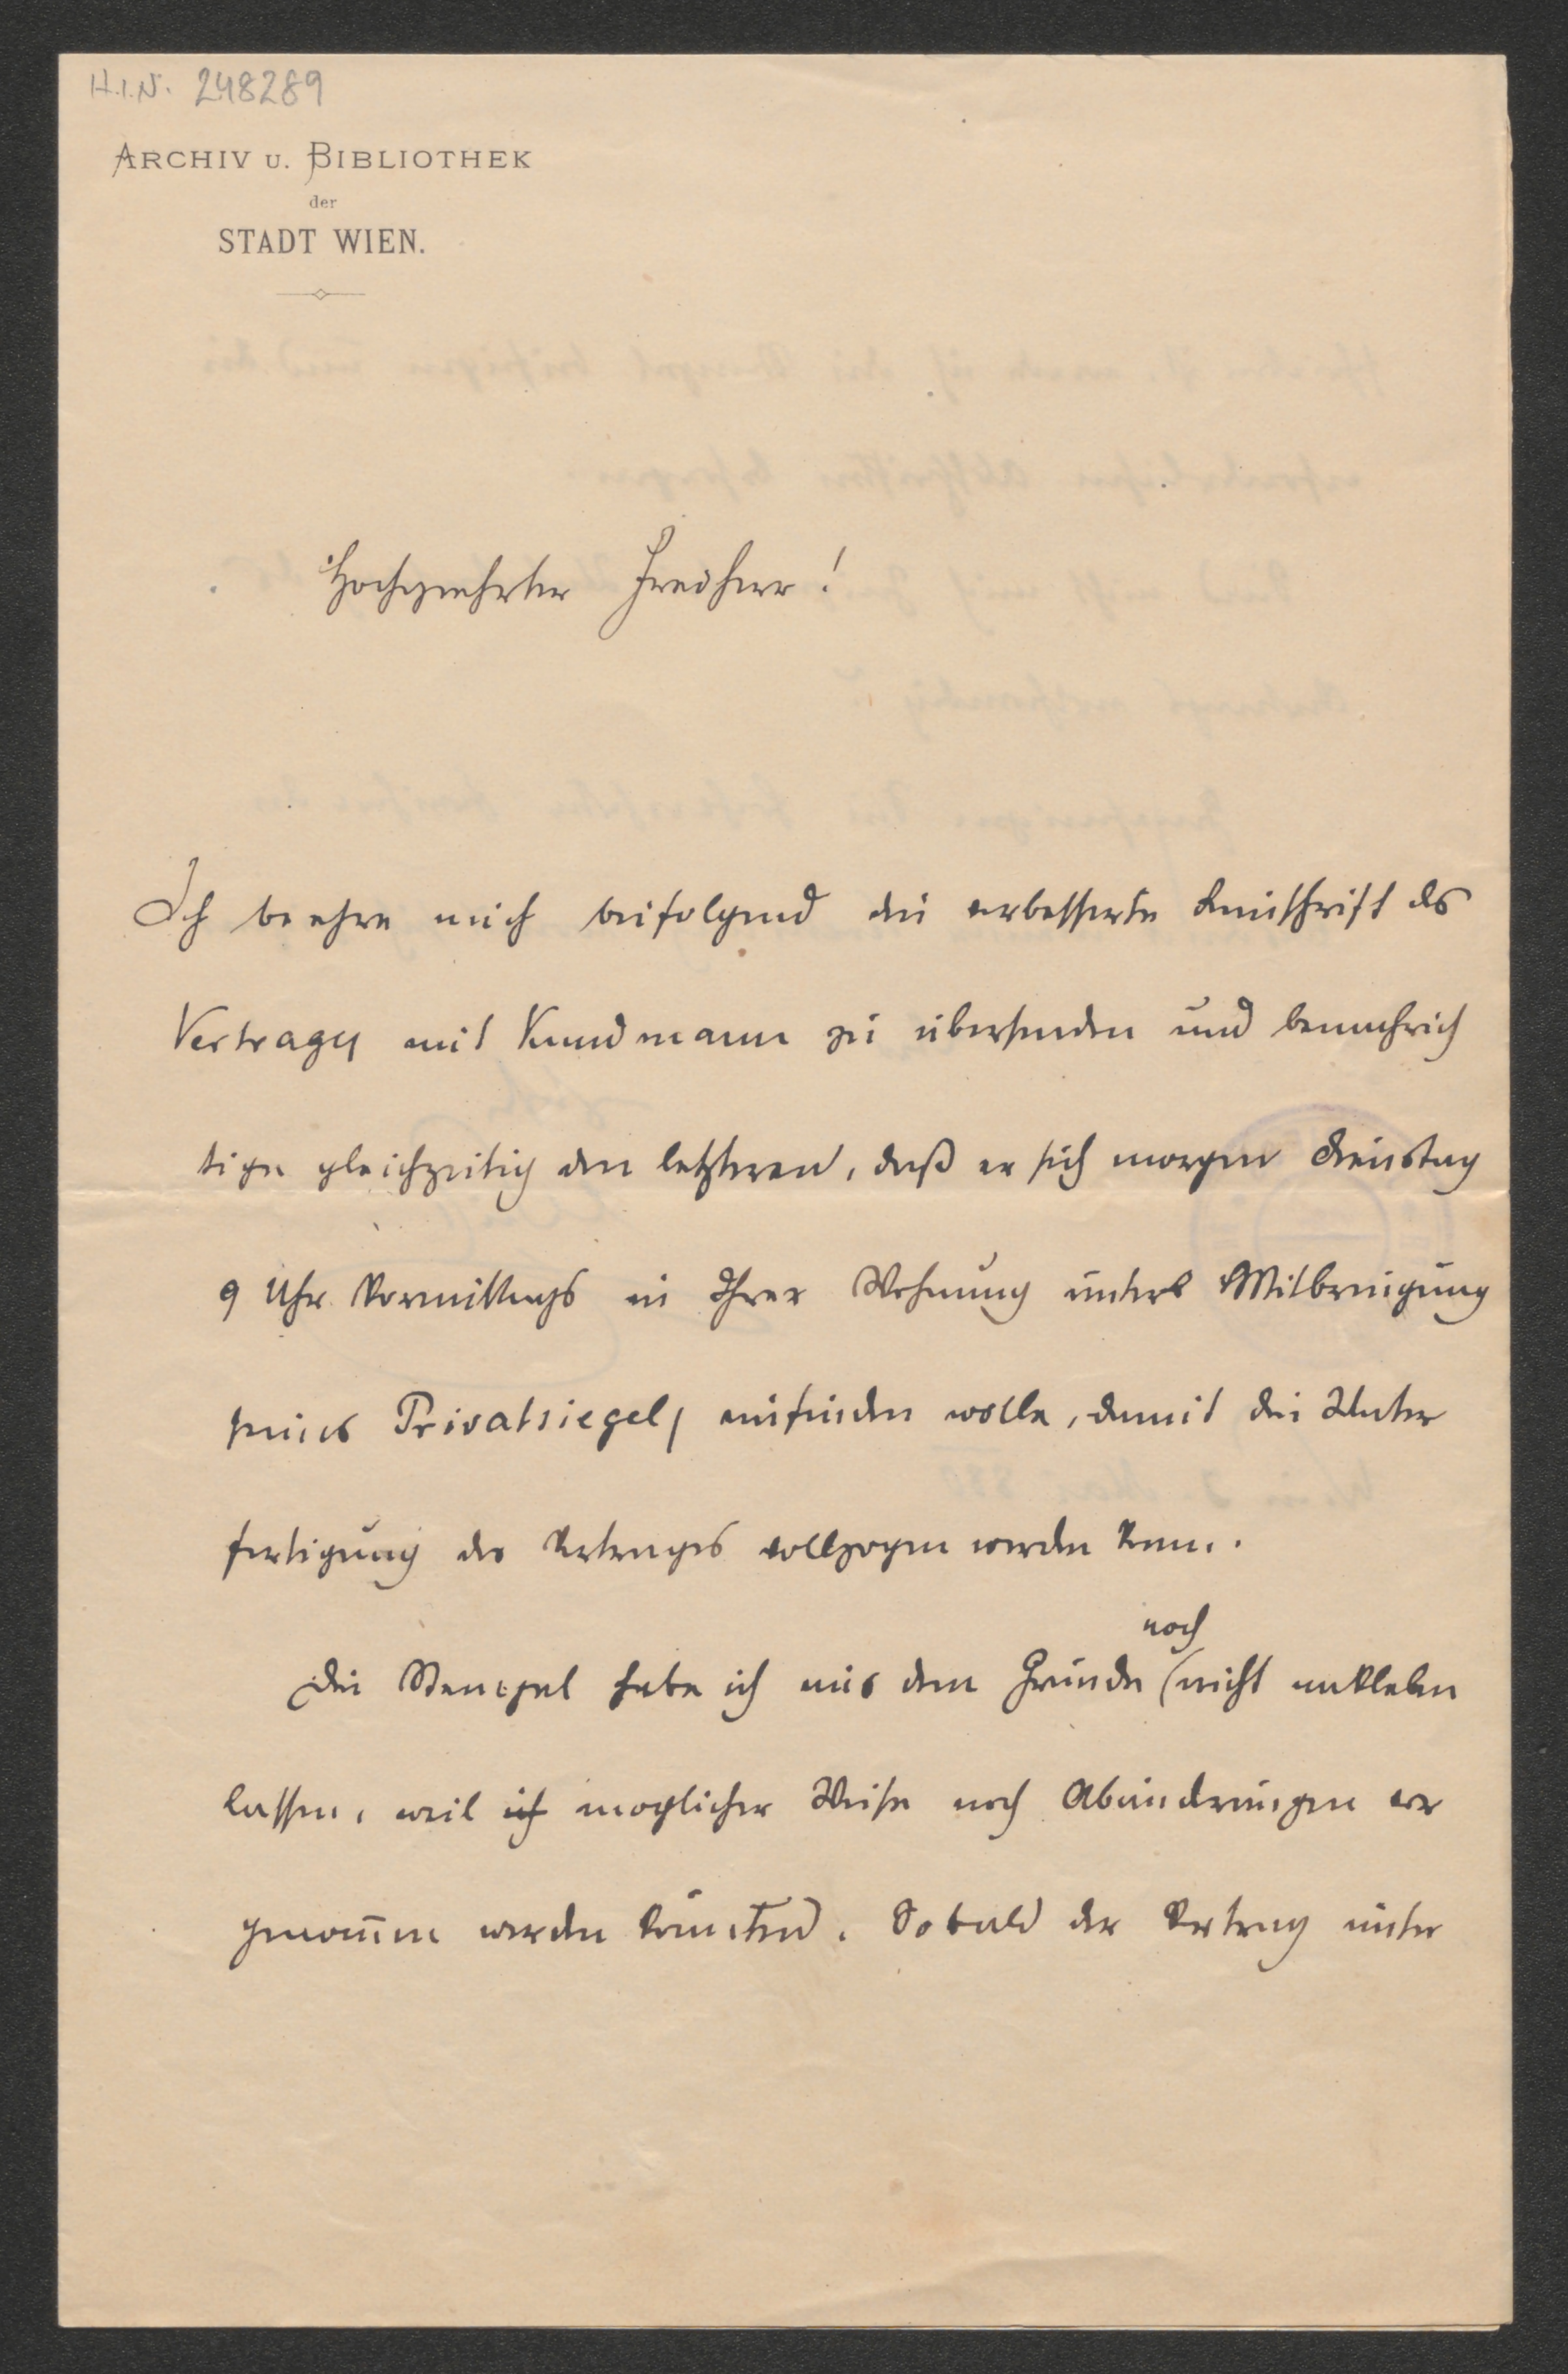 H.I.N. 248289
ARCHIV U. BIBLIOTHEK
der
STADT WIEN.
Hochgeehrter Freiherr!
Ich beehre mich beifolgend die verbesserte Reinschrift des
Vertrages mit Kundmann zu übersenden und benachrich
tige gleichzeitig den letzteren, daß er sich morgen Dienstag
9 Uhr Vormittags in Ihrer Wohnung unter Mitbringung
seines Privatsiegels einfinden wolle, damit die Unter
fertigung des Vertrages vollzogen werden kann.
noch
Die Stempel habe ich aus dem Grunde (nicht ankleben
lassen, weil ich moglicher Weise noch Abänderungen vor
genommen werden könnten. Sobald der Vertrag unter